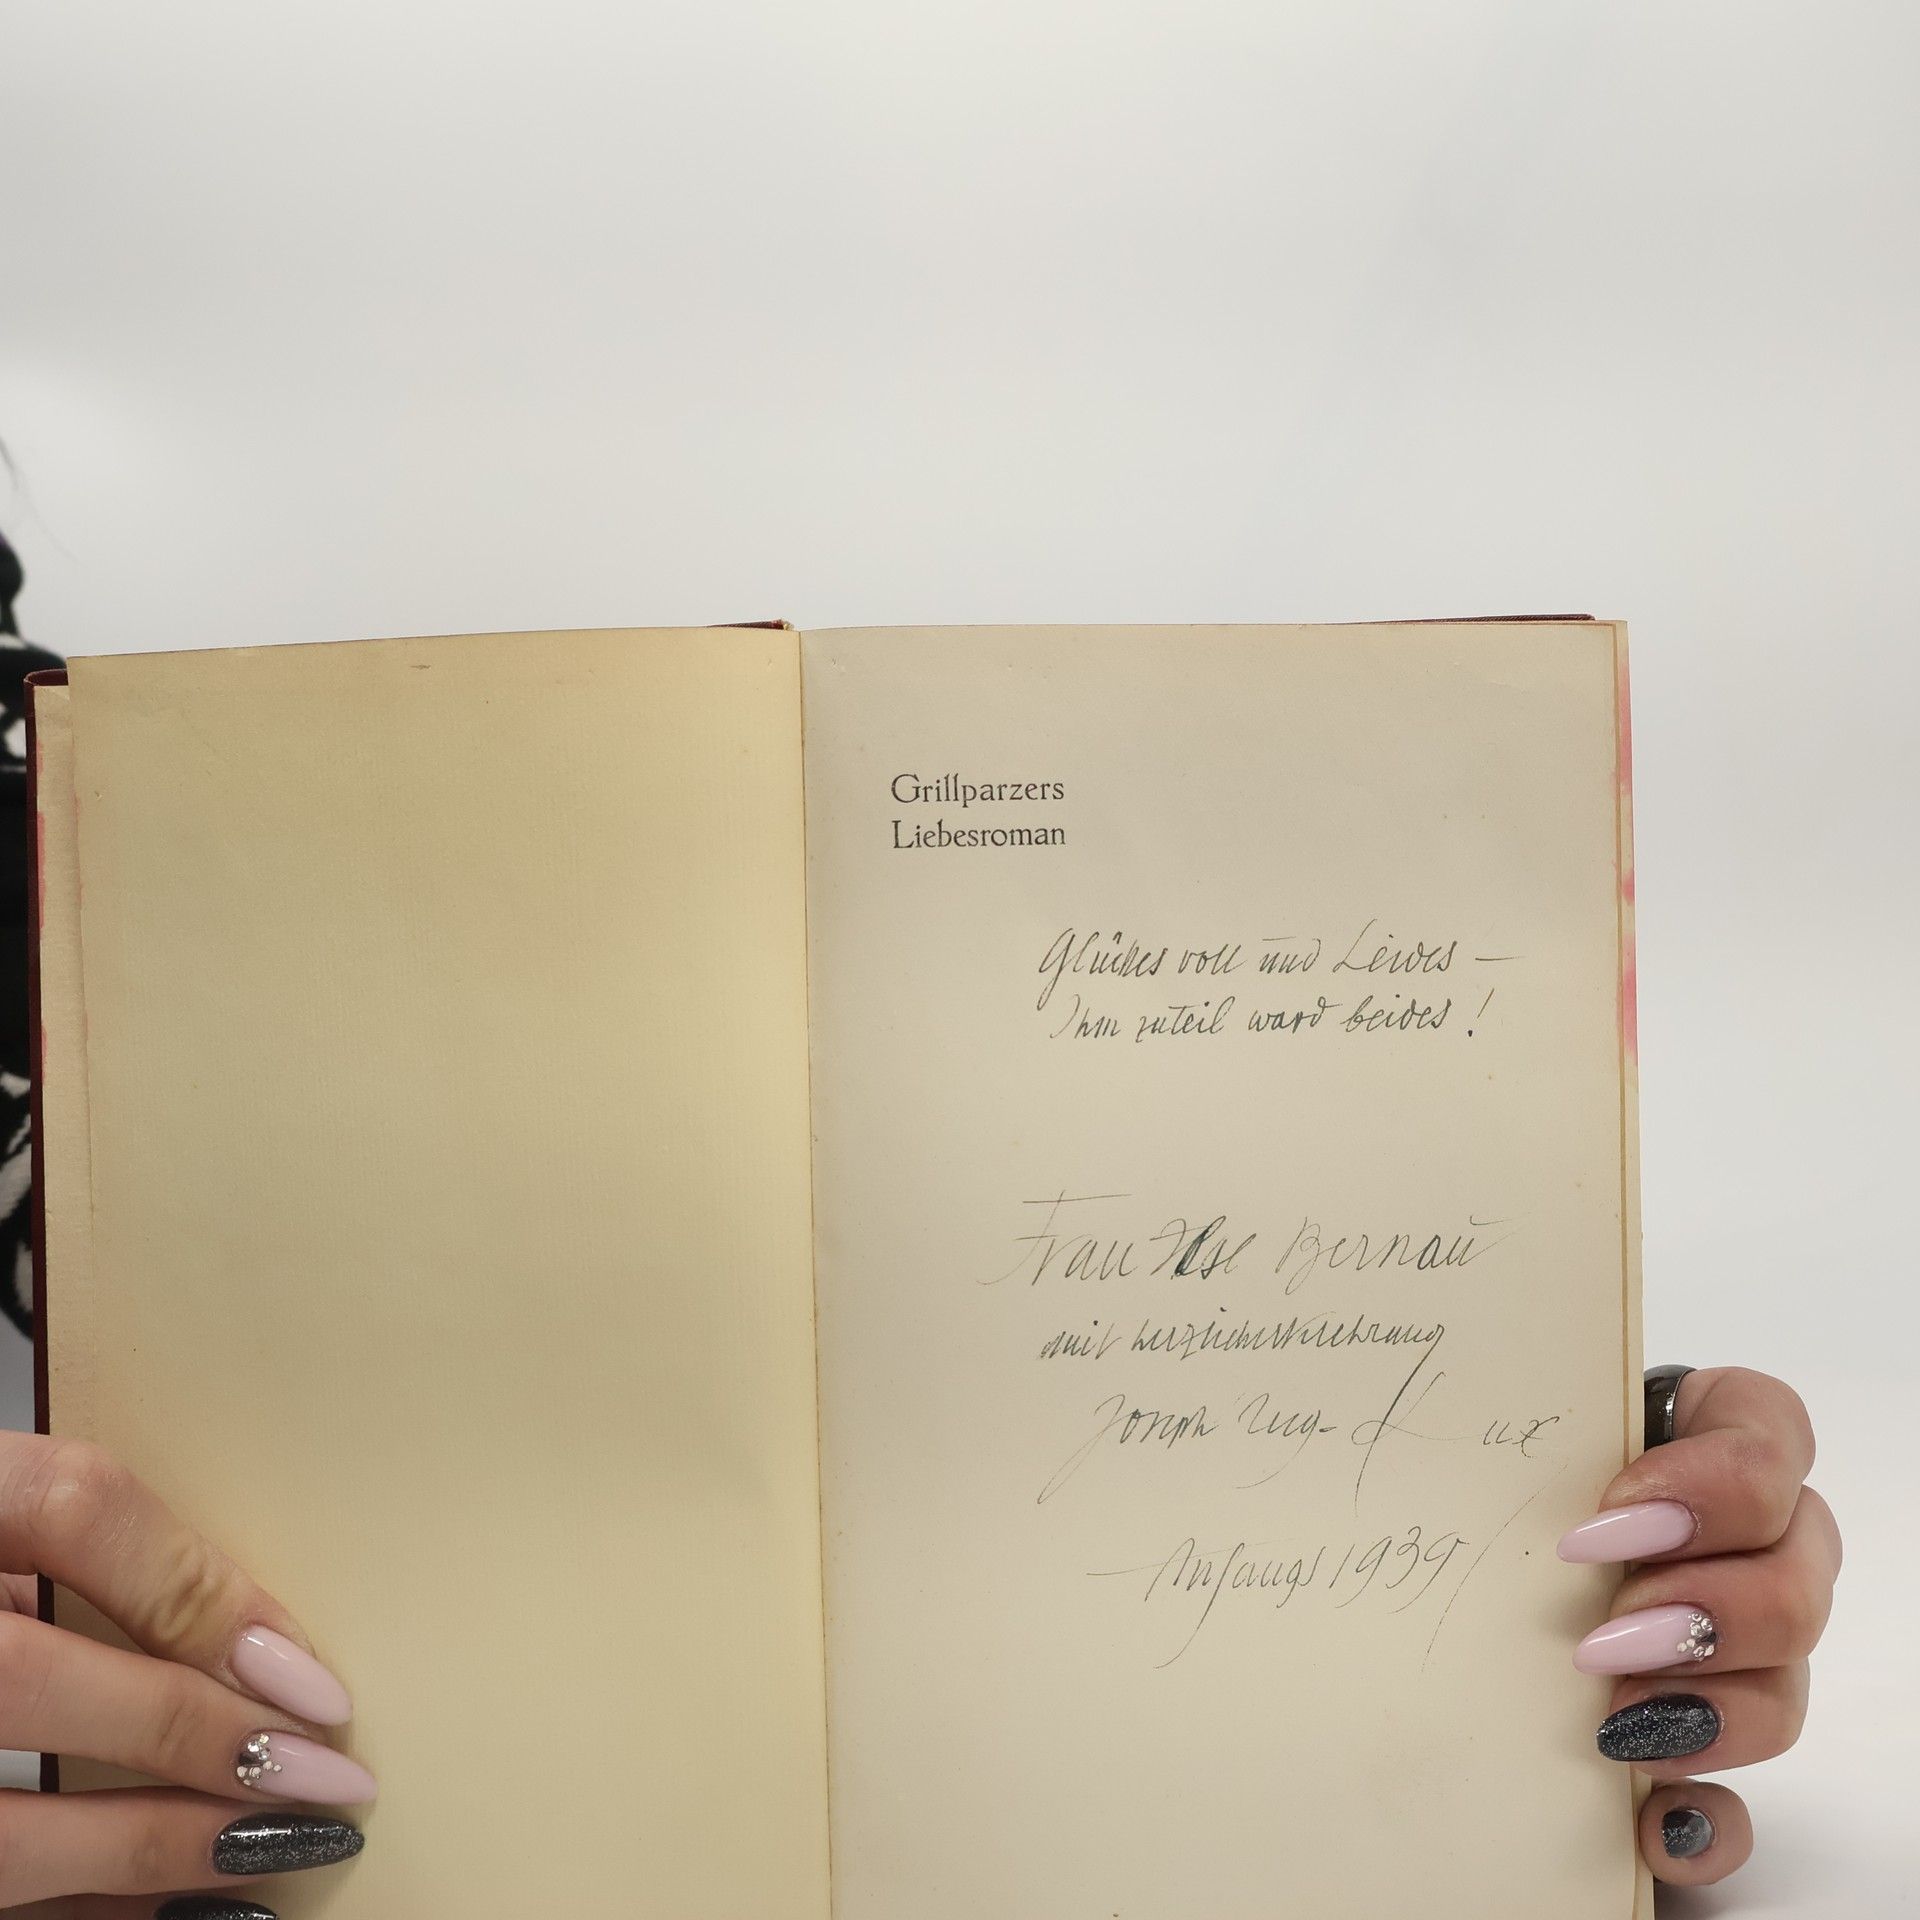 Grillparzers
Liebesroman
Glückes voll und Leides —
Ihm zuteil ward beides!
Frau Ilse Bernau
mit herzlicher Verehrung
Joseph Aug. Lux
Anfangs 1939